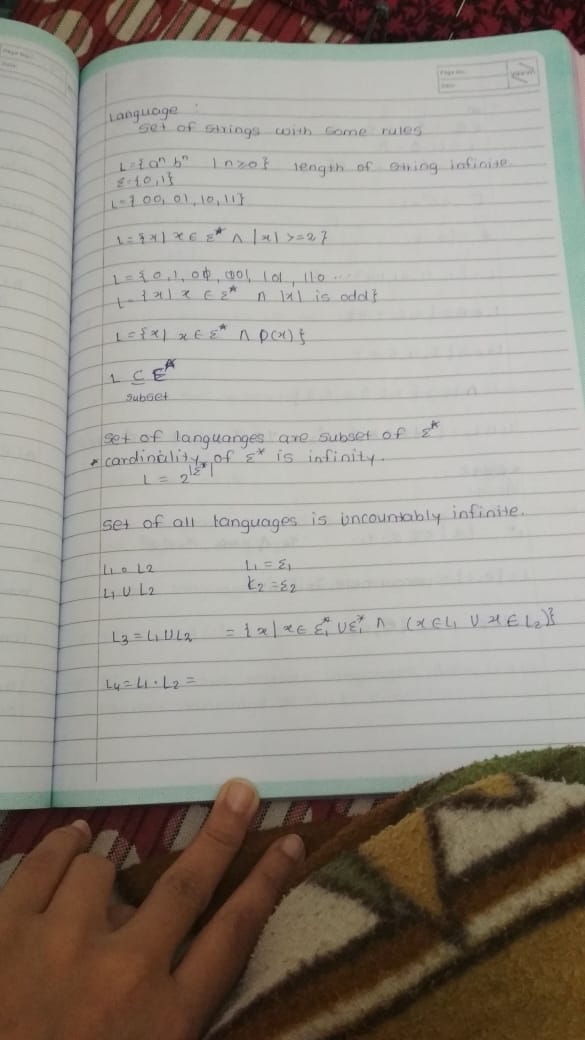 Page No.:
Date:
Language :
set of strings with some rules
L = {aⁿ bⁿ | n>0} length of string infinite.
Σ = {0,1}
L = { 00, 01, 10, 11}
L = {x | x ∈ Σ* ∧ |x| >=2}
L = {0, 1, 00, 001, 101, 110 ...
L = {x | x ∈ Σ* ∩ |x| is odd}
L = {x | x ∈ Σ* ∧ P(x)}
L ⊆ Σ*
subset
set of languanges are subset of Σ*
* cardinality of Σ* is infinity.
L = 2^|Σ*|
set of all languages is uncountably infinite.
L₁ o L₂ L₁ = Σ₁
L₁ ∪ L₂ L₂ = Σ₂
L₃ = L₁ ∪ L₂ = {x | x ∈ Σ₁* ∪ Σ₁* ∧ (x ∈ L₁ ∪ x ∈ L₂)}
L₄ = L₁ · L₂ =